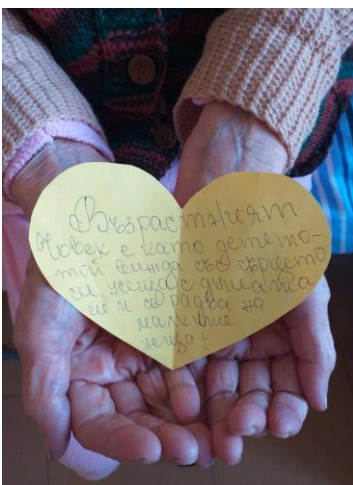 Възрастният
човек е като детето-
той вижда със сърцето
си, усеща с душата
си и се радва на
малките
неща!